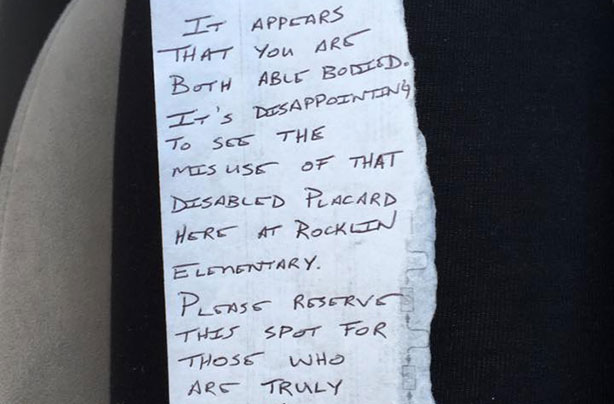 It appears
that you are
both able bodied.
It's disappointing
to see the
misuse of that
disabled placard
here at Rocklin
Elementary.
Please reserve
this spot for
those who
are truly